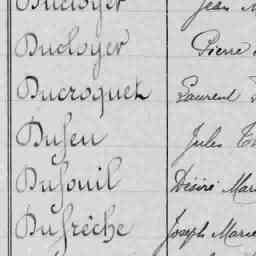 Ducloyer Jean
Ducloyer Pierre
Ducroquet Laurent
Dufeu Jules
Dufouil Désiré Mari
Dufrèche Joseph Marie